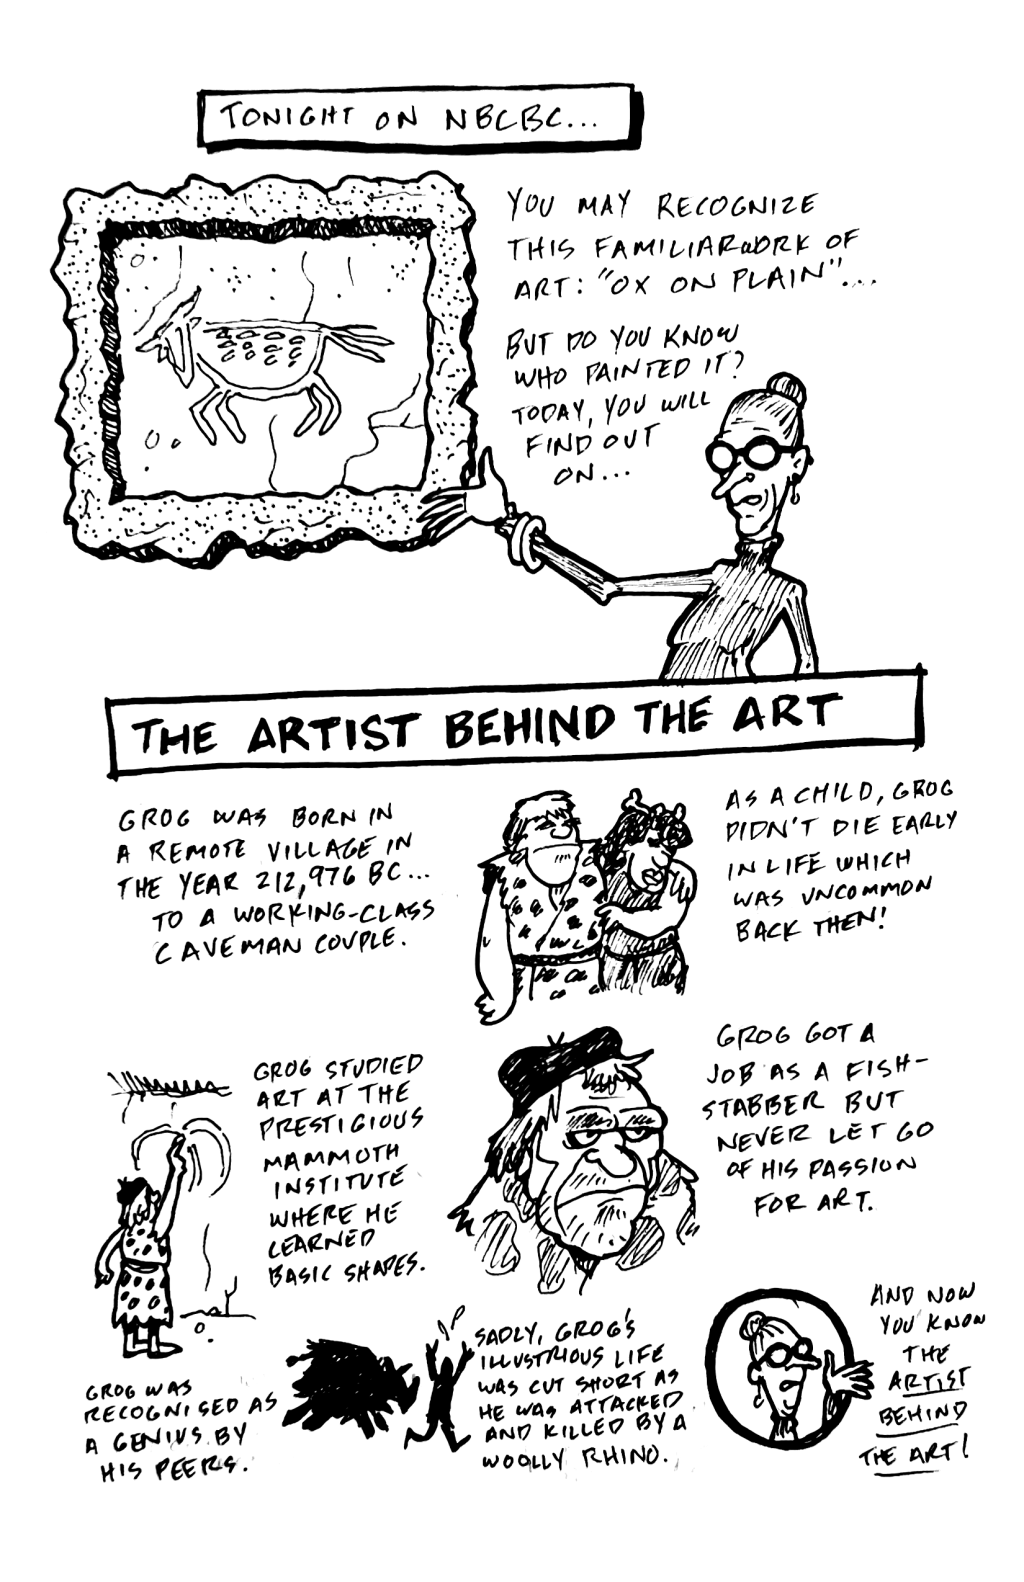 TONIGHT ON NBCBC...
YOU MAY RECOGNIZE
THIS FAMILIAR WORK OF
ART: "OX ON PLAIN"...
BUT DO YOU KNOW
WHO PAINTED IT?
TODAY, YOU WILL
FIND OUT
ON...
THE ARTIST BEHIND THE ART
GROG WAS BORN IN
A REMOTE VILLAGE IN
THE YEAR 212,976 BC...
TO A WORKING-CLASS
CAVEMAN COUPLE.
AS A CHILD, GROG
DIDN'T DIE EARLY
IN LIFE WHICH
WAS UNCOMMON
BACK THEN!
GROG STUDIED
ART AT THE
PRESTIGIOUS
MAMMOTH
INSTITUTE
WHERE HE
LEARNED
BASIC SHAPES.
GROG GOT A
JOB AS A FISH-
STABBER BUT
NEVER LET GO
OF HIS PASSION
FOR ART.
GROG WAS
RECOGNISED AS
A GENIUS BY
HIS PEERS.
SADLY, GROG'S
ILLUSTRIOUS LIFE
WAS CUT SHORT AS
HE WAS ATTACKED
AND KILLED BY A
WOOLLY RHINO.
AND NOW
YOU KNOW
THE
ARTIST
BEHIND
THE ART!